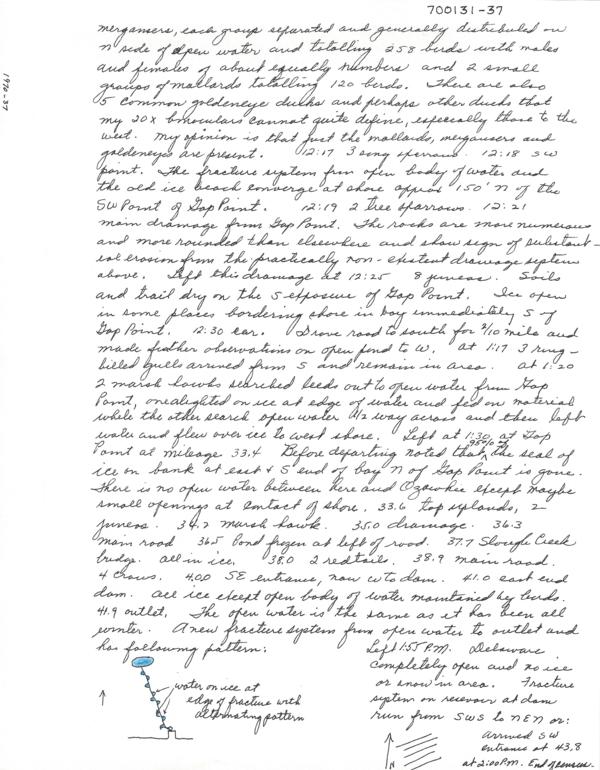 700131-37
1970-37
mergansers, each group separated and generally distributed on
N side of open water and totalling 258 birds with males
and females of about equally numbers and 2 small
groups of mallards totalling 120 birds. There are also
5 common goldeneye ducks and perhaps other ducks that
my 20x binoculars cannot quite define, especially those to the
west. My opinion is that just the mallards, mergansers and
goldeneyes are present. 12:17 3 song sparrows. 12:18 SW
point. The fracture system from open body of water and
the old ice beach converge at shore approx 150' N of the
SW Point of Gap Point. 12:19 2 tree sparrows. 12:21
main drainage from Gap Point. The rocks are more numerous
and more rounded than elsewhere and show sign of substant-
ial erosion from the practically non-existent drainage system
above. Left this drainage at 12:25 8 juncos. Soils
and trail dry on the S exposure of Gap Point. Ice open
in some places bordering shore in bay immediately S of
Gap Point. 12:30 car. Drove road to south for 2/10 mile and
made further observations on open pond to W. At 1:17 3 ring-
billed gulls arrived from S and remain in area. At 1:20
2 marsh hawks searched leeds out to open water from Gap
Point, one alighted on ice at edge of water and fed on material
while the other search open water 1/2 way across and then left
water and flew over ice to west shore. Left at 1:30 at Gap
Point at mileage 33.4 Before departing noted that 98% of the seal of
ice on bank at east & S end of bay N of Gap Point is gone.
There is no open water between here and Ozawkie except maybe
small openings at contact of shore. 33.6 top uplands, 2
juncos. 34.2 marsh hawk. 35.0 drainage. 36.3
main road 36.5 Pond frozen at left of road. 37.7 Slough Creek
bridge. all in ice. 38.0 2 redtails. 38.9 main road.
4 crows. 40.0 SE entrance, now W to dam. 41.0 east end
dam. all ice except open body of water maintained by birds.
41.9 outlet. The open water is the same as it has been all
winter. A new fracture system from open water to outlet and
has following pattern:
water on ice at
edge of fracture with
alternating pattern
Left 1:55 P.M. Delaware
completely open and no ice
or snow in area. Fracture
system on reservoir at dam
run from SWS to NEN or:
N
Arrived SW
entrance at 43.8
at 2:00 P.M. End of census.